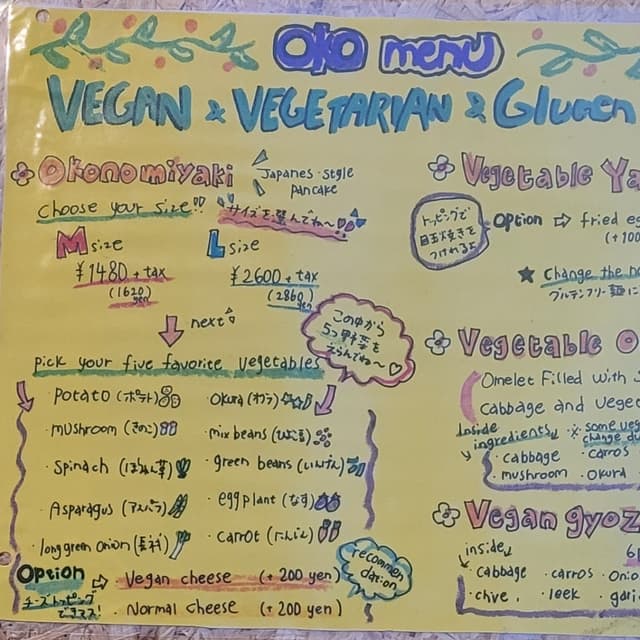 OKO menu
VEGAN & VEGETARIAN & Gluten
Okonomiyaki
Japanes-style
Pancake
Choose your size!!
サイズを選んでね〜
M size
¥1480 + tax
(1620 yen)
L size
¥2600 + tax
(2860 yen)
next
pick your five favorite vegetables
この中から
5つ野菜を
えらんでね〜♡
・potato (ポテト)
・mushroom (きのこ)
・Spinach (ほうれん草)
・Asparagus (アスパラ)
・long green onion (長ネギ)
・okura (オクラ)
・mix beans (ひよこ豆)
・green beans (いんげん)
・eggplant (なす)
・carrot (にんじん)
Option ⇨ Vegan cheese (+200 yen)
・Normal cheese (+200 yen)
チーズトッピング
できマス!
recommen
dation
Vegetable Ya
トッピングで
目玉焼きを
つけれるよ
Option ⇨ fried eg
(+100
★ Change the no
グルテンフリー麺に
Vegetable O
Omelet Filled with S
cabbage and veget
Inside
ingredients
※ some veg
change du
・cabbage ・carros
・mushroom ・Okura
Vegan gyoz
6
inside
・cabbage ・carros ・Onio
・chive, ・leek ・garli